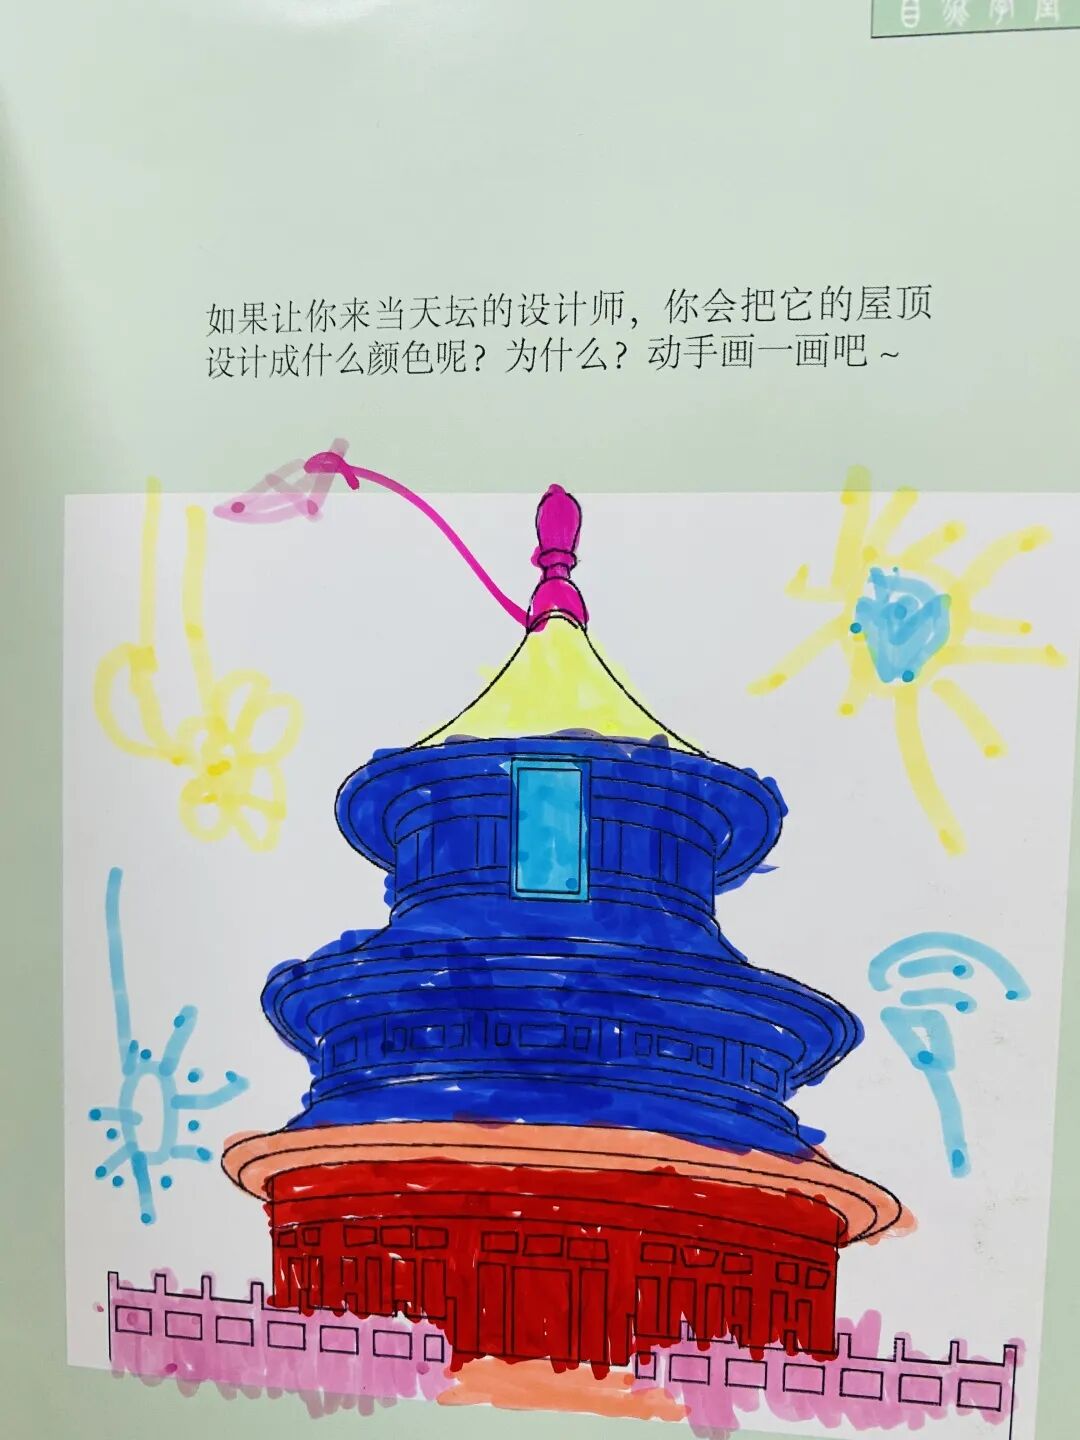 如果让你来当天坛的设计师，你会把它的屋顶
设计成什么颜色呢？为什么？动手画一画吧～